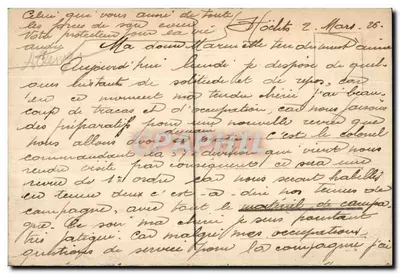 Celui qui vous aime de toute
les forces de son coeur
Votre protecteur pour la vie
Höchts 2 Mars. 26.
Ma douce Marinette tendrement aimée
Aujourd'hui lundi je dispose de quel-
ques instants de solitude et de repos, car
en ce moment ma tendre chérie j'ai beau-
coup de tracas et d'occupation car nous faisons
des préparatifs pour une nouvelle revue que
nous allons C'est le colonel
commandant la qui vient nous
rendre visite par conséquent ce sera une
revue de 1er ordre car nous serons habillés
en tenue deux c'est-à-dire nos tenues de
campagne, avec tout le matériel de campa-
gne. Ce soir ma chérie je suis pourtant
très fatigué car malgré mes occupations
questions de service pour la compagnie j'ai